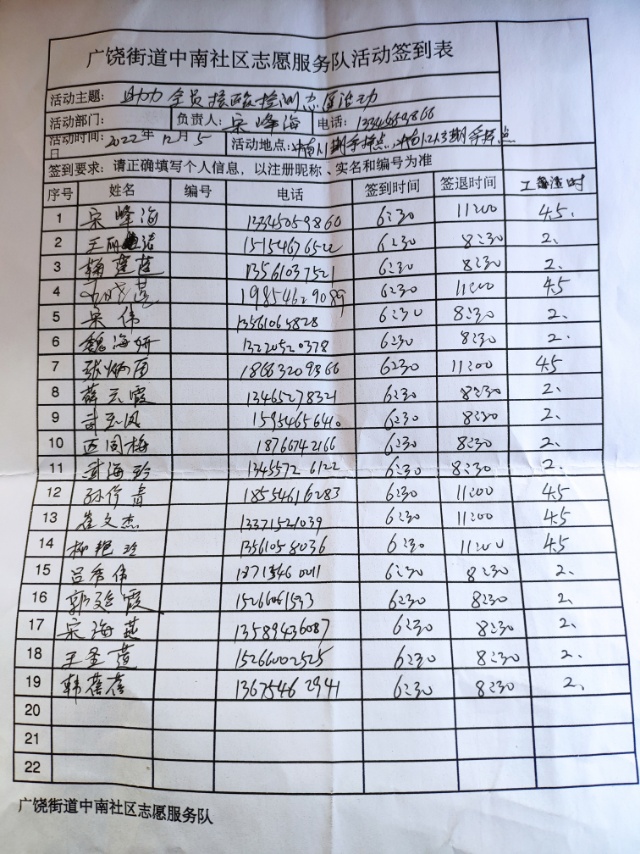 广饶街道中南社区志愿服务队活动签到表
活动主题: 助力全员核酸检测志愿活动
活动部门: 负责人: 宋峰海 电话:
活动时间: 2022年12月5日 活动地点:
签到要求: 请正确填写个人信息, 以注册昵称、实名和编号为准
序号 姓名 编号 电话 签到时间 签退时间
1 宋峰海 13345059860 6:30 11:00 4.5.
2 15154676522 6:30 8:30 2.
3 韩莲莲 1356103752 6:30 8:30 2.
4 19854629089 6:30 11:00 4.5
5 宋伟 13561065828 6:30 8:30 2.
6 魏海妍 13220520378 6:30 8:30 2.
7 18663209866 6:30 11:00 4.5
8 薛云霞 13465278321 6:30 8:30 2.
9 15954656410 6:30 8:30 2.
10 18766742166 6:30 8:30 2.
11 6122 6:30 8:30 2.
12 18554616283 6:30 11:00 4.5
13 崔文杰 13371521039 6:30 11:00 4.5
14 柳艳玲 13561058036 6:30 11:00 4.5
15 吕秀伟 6:30 8:30 2.
16 6:30 8:30 2.
17 宋海燕 13589436087 6:30 8:30 2.
18 15266002525 6:30 8:30 2.
19 韩蓓蓓 13675462941 6:30 8:30 2.
20
21
22
广饶街道中南社区志愿服务队